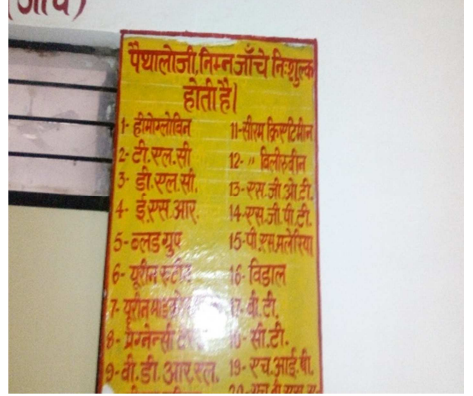 (जांच)
पैथालोजी,निम्न जाँचे निःशुल्क
होती है|
1- हीमोग्लोविन
2- टी.एल.सी
3- डी.एल.सी.
4- ई.एस.आर.
5- ब्लड ग्रुप
6- यूरीन रुटीन
7- यूरीन
8- प्रेग्नेन्सी
9- वी.डी.आर.एल.
11- सीरम क्रिएटिमीन
12- " विलीरुवीन
13- एस.जी.ओ.टी.
14- एस.जी.पी.टी.
15- पी.एस.मलेरिया
16- विडाल
17- वी.टी.
18- सी.टी.
19- एच.आई.बी.